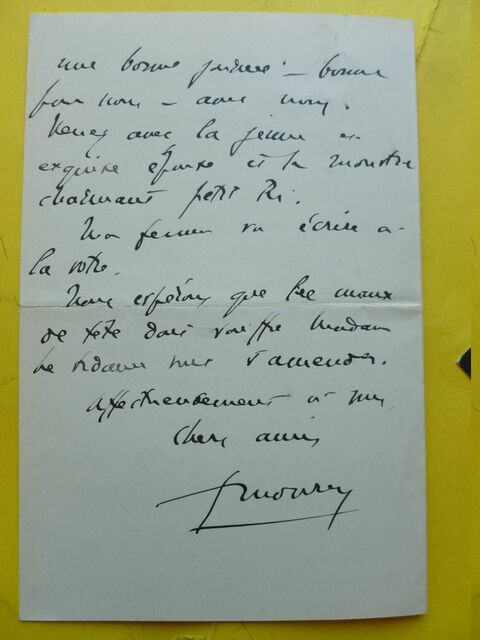 une bonne journée – bonne
pour nous – avec nous.
Venez avec la jeune et
exquise épouse et le monstre
charmant petit
Ma femme va écrire à
la vôtre.
Nous espérons que les maux
de tête dont souffre Madame
vont s'amender.
Affectueusement à vous,
chers amis